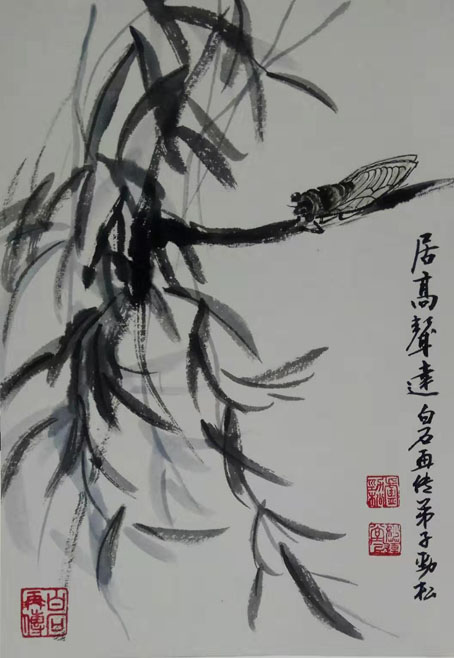 居高聲達 白石再传弟子劲松
白石再傳